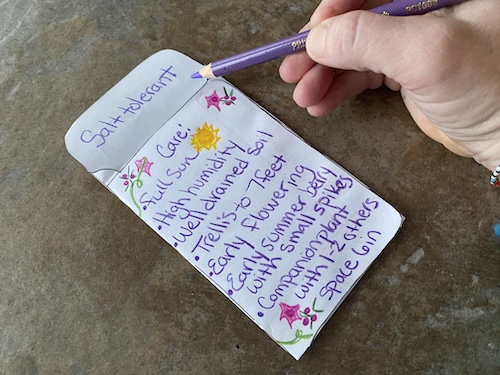 Salt tolerant
Care!
• Full Sun
• High humidity
• Well drained Soil
• Trellis to 7feet
• Early flowering
• Early summer berry
with small spikes
• Companion plant
with 1-2 others
space 6in